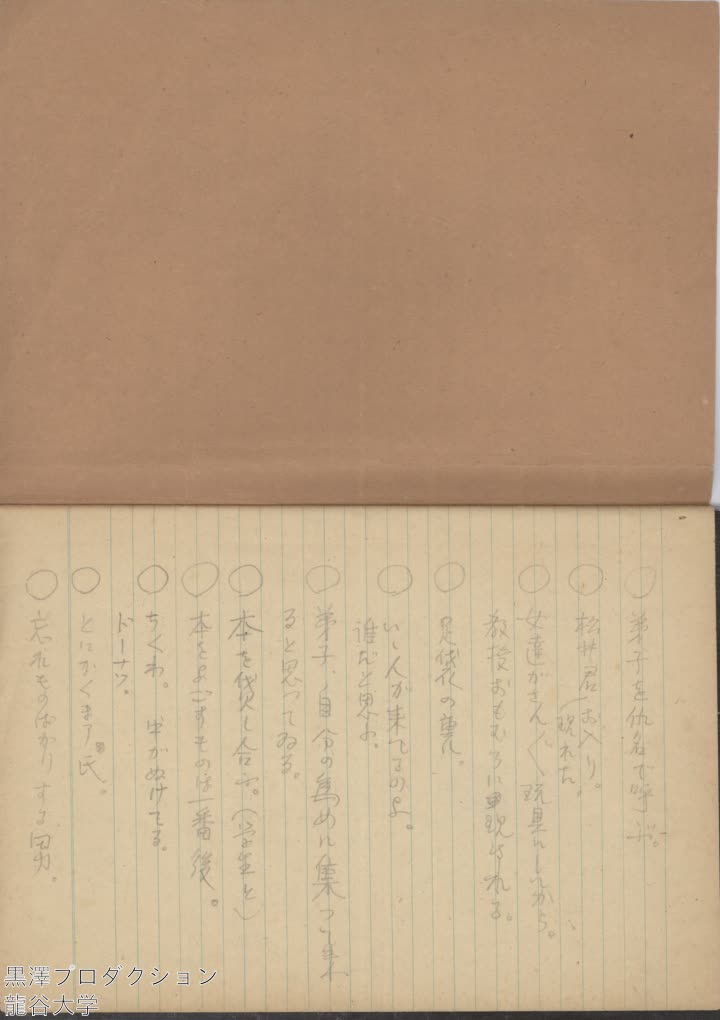 ○ 弟子を仇名で呼ぶ。
○ 松井君(お入り。
現れた。
○ 女達がさん〲玩具にしてから。
教授おもむろに出現される。
○ 足袋の裏。
○ いゝ人が来てるのよ。
誰だと思ふ。
○ 弟子、自分の為めに集つて来
ると思つてゐる。
○ 本を貸し合ふ。(学生と)
○ 本をよごすものは一番後。
○ ちくわ。中がぬけてる。
ドーナツ。
○ とにかくまア氏。
○ 忘れものばかりする男。
黒澤プロダクション
龍谷大学